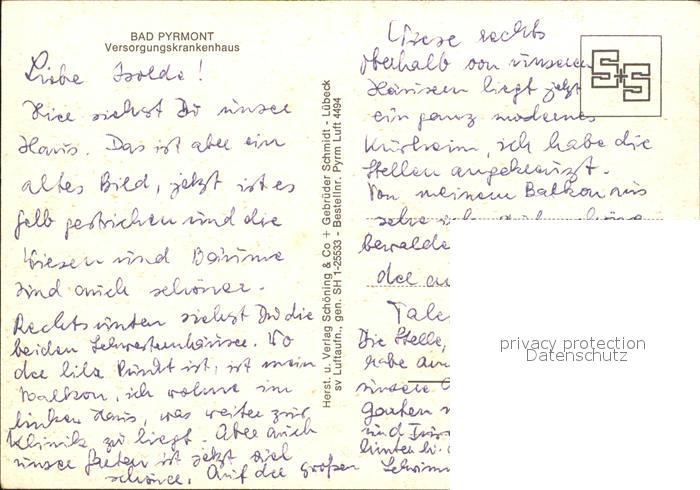 BAD PYRMONT
Versorgungskrankenhaus
Liebe Isolde!
Hier siehst Du unser
Haus. Das ist aber ein
altes Bild, jetzt ist es
gelb gestrichen und die
Wiesen und Bäume
sind auch schöner.
Rechts unten siehst Du die
beiden Schwesternhäuser. Wo
der lila Punkt ist, ist mein
Balkon, ich wohne im
linken Haus, was weiter zur
Klinik zu liegt. Aber auch
unser Garten ist jetzt viel
schöner. Auf der großen
Herst. u. Verlag Schöning & Co + Gebrüder Schmidt - Lübeck
sv Luftaufn., gen. SH 1-25533 - Bestellnr. Pyrm Luft 4494
S+S
Wiese rechts
oberhalb von unseren
Häusern liegt jetzt
ein ganz modernes
Kurheim, ich habe die
Stellen angekreuzt.
Von meinem Balkon aus
sehe ich
bewalde
der
Tale
Die Stelle,
habe
unsere
Garten
und
hinter
Schwim
privacy protection
Datenschutz